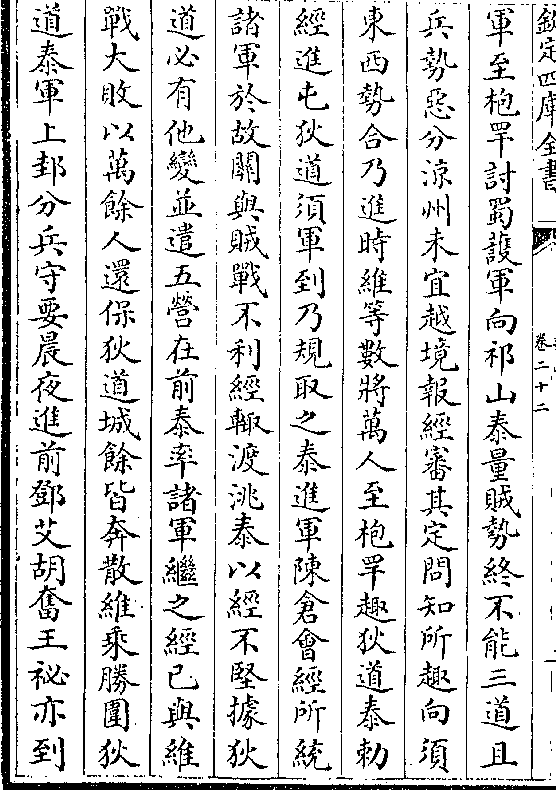 欽定四庫全書
卷二十二
軍至枹罕討蜀護軍向祁山泰量賊勢終不能三道且
兵勢惡分涼州未宜越境報經審其定問知所趣向須
東西勢合乃進時維等數將萬人至枹罕趣狄道泰勅
經進屯狄道須軍到乃規取之泰進軍陳倉會經所統
諸軍於故關與賊戰不利經輙渡洮泰以經不堅據狄
道必有他變並遣五營在前泰率諸軍繼之經已與維
戰大敗以萬餘人還保狄道城餘皆奔散維乘勝圍狄
道泰軍上邽分兵守要晨夜進前鄧艾胡奮王祕亦到